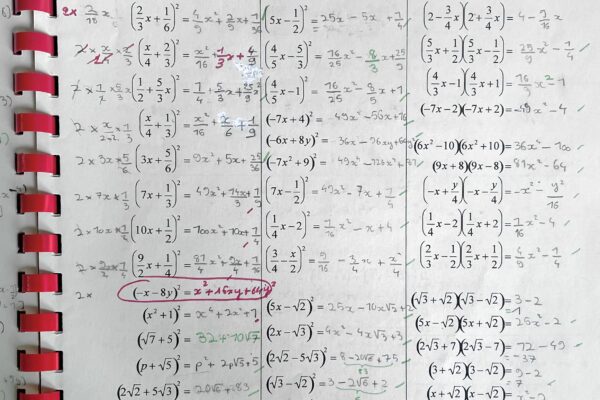 2x 2/10 x (2/3 x + 1/6)² = 4/9 x² + 2/9 x + 1/36
(x/4 + 2/3)² = x²/16 + 1/3 x + 4/9
(1/2 + 5/3 x)² = 1/4 + 5/3 x + 25/9 x²
(x/4 + 1/3)² = x²/16 + x/6 + 1/9
2 × 3x × 5/6 (3x + 5/6)² = 9x² + 5x + 25/36
2 × 7x × 1/3 (7x + 1/3)² = 49x² + 14x/3 + 1/9
2 × 10x × 1/2 (10x + 1/2)² = 100x² + 10x + 1/4
(9/2 x + 1/4)² = 81/4 x² +
2x (-x - 8y)² = x² + 16xy + 64y²
(x² + 1)² = x⁴ + 2x² + 1
(√7 + 5)² = 32 + 10√7
(p + √5)² = p² + 2p√5 + 5
(2√2 + 5√3)² = 20√6 + 83
(5x - 1/2)² = 25x² - 5x + 1/4
(4/5 x - 5/3)² = 16/25 x² - 8/3 x + 25/9
(4/5 x - 1)² = 16/25 x² - 8/5 x + 1
(-7x + 4)² = 49x² - 56x + 16
(-6x + 8y)² = 36x - 96xy + 64y²
(-7x² + 9)² =
(7x - 1/2)² = 49x² - 7x + 1/4
(1/4 x - 2)² = 1/16 x² - x + 4
(3/4 - x/2)² = 9/16 - 3/4 x + x²/4
(5x - √2)² = 25x - 10x√2 + 2
(2x - √3)² = 4x² - 4x√3 + 3
(2√2 - 5√3)² = 8 - 20√6 + 75
83
(√3 - √2)² = 3 - 2√6 + 2
5
(2 - 3/4 x)(2 + 3/4 x) = 4 - 9/16 x
(5/3 x + 1/2)(5/3 x - 1/2) = 25/9 x² - 1/4
(4/3 x - 1)(4/3 x + 1) = 16/9 x² - 1
(-7x - 2)(-7x + 2) = 49x² - 4
(6x² - 10)(6x² + 10) = 36x⁴ - 100
(9x + 8)(9x - 8) = 81x² - 64
(-x + y/4)(-x - y/4) = -x² - y²/16
(1/4 x - 2)(1/4 x + 2) = 1/16 x² - 4
(2/3 x - 1/2)(2/3 x + 1/2) = 4/9 x² - 1/4
(√3 + √2)(√3 - √2) = 3 - 2
= 1
(5x - √2)(5x + √2) = 25x² - 2
(2√3 + 7)(2√3 - 7) = 12 - 49
= -37
(3 + √2)(3 - √2) = 9 - 2
= 7
(x + √2)(x - √2) = x² - 2